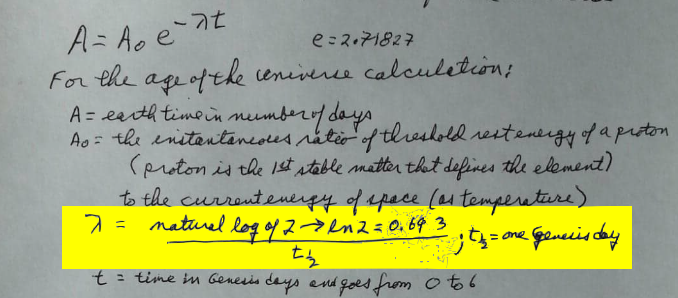 A = A₀ e^-λt
e = 2.71827
For the age of the universe calculation:
A = earth time in number of days
A₀ = the instantaneous ratio of threshold rest energy of a proton
(proton is the 1st stable matter that defines the element)
to the current energy of space (as temperature)
λ = natural log of 2 → ln 2 = 0.693 / t½ ; t½ = one Genesis day
t = time in Genesis days and goes from 0 to 6